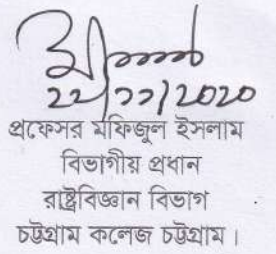 22/11/2020
প্রফেসর মফিজুল ইসলাম
বিভাগীয় প্রধান
রাষ্ট্রবিজ্ঞান বিভাগ
চট্টগ্রাম কলেজ চট্টগ্রাম।